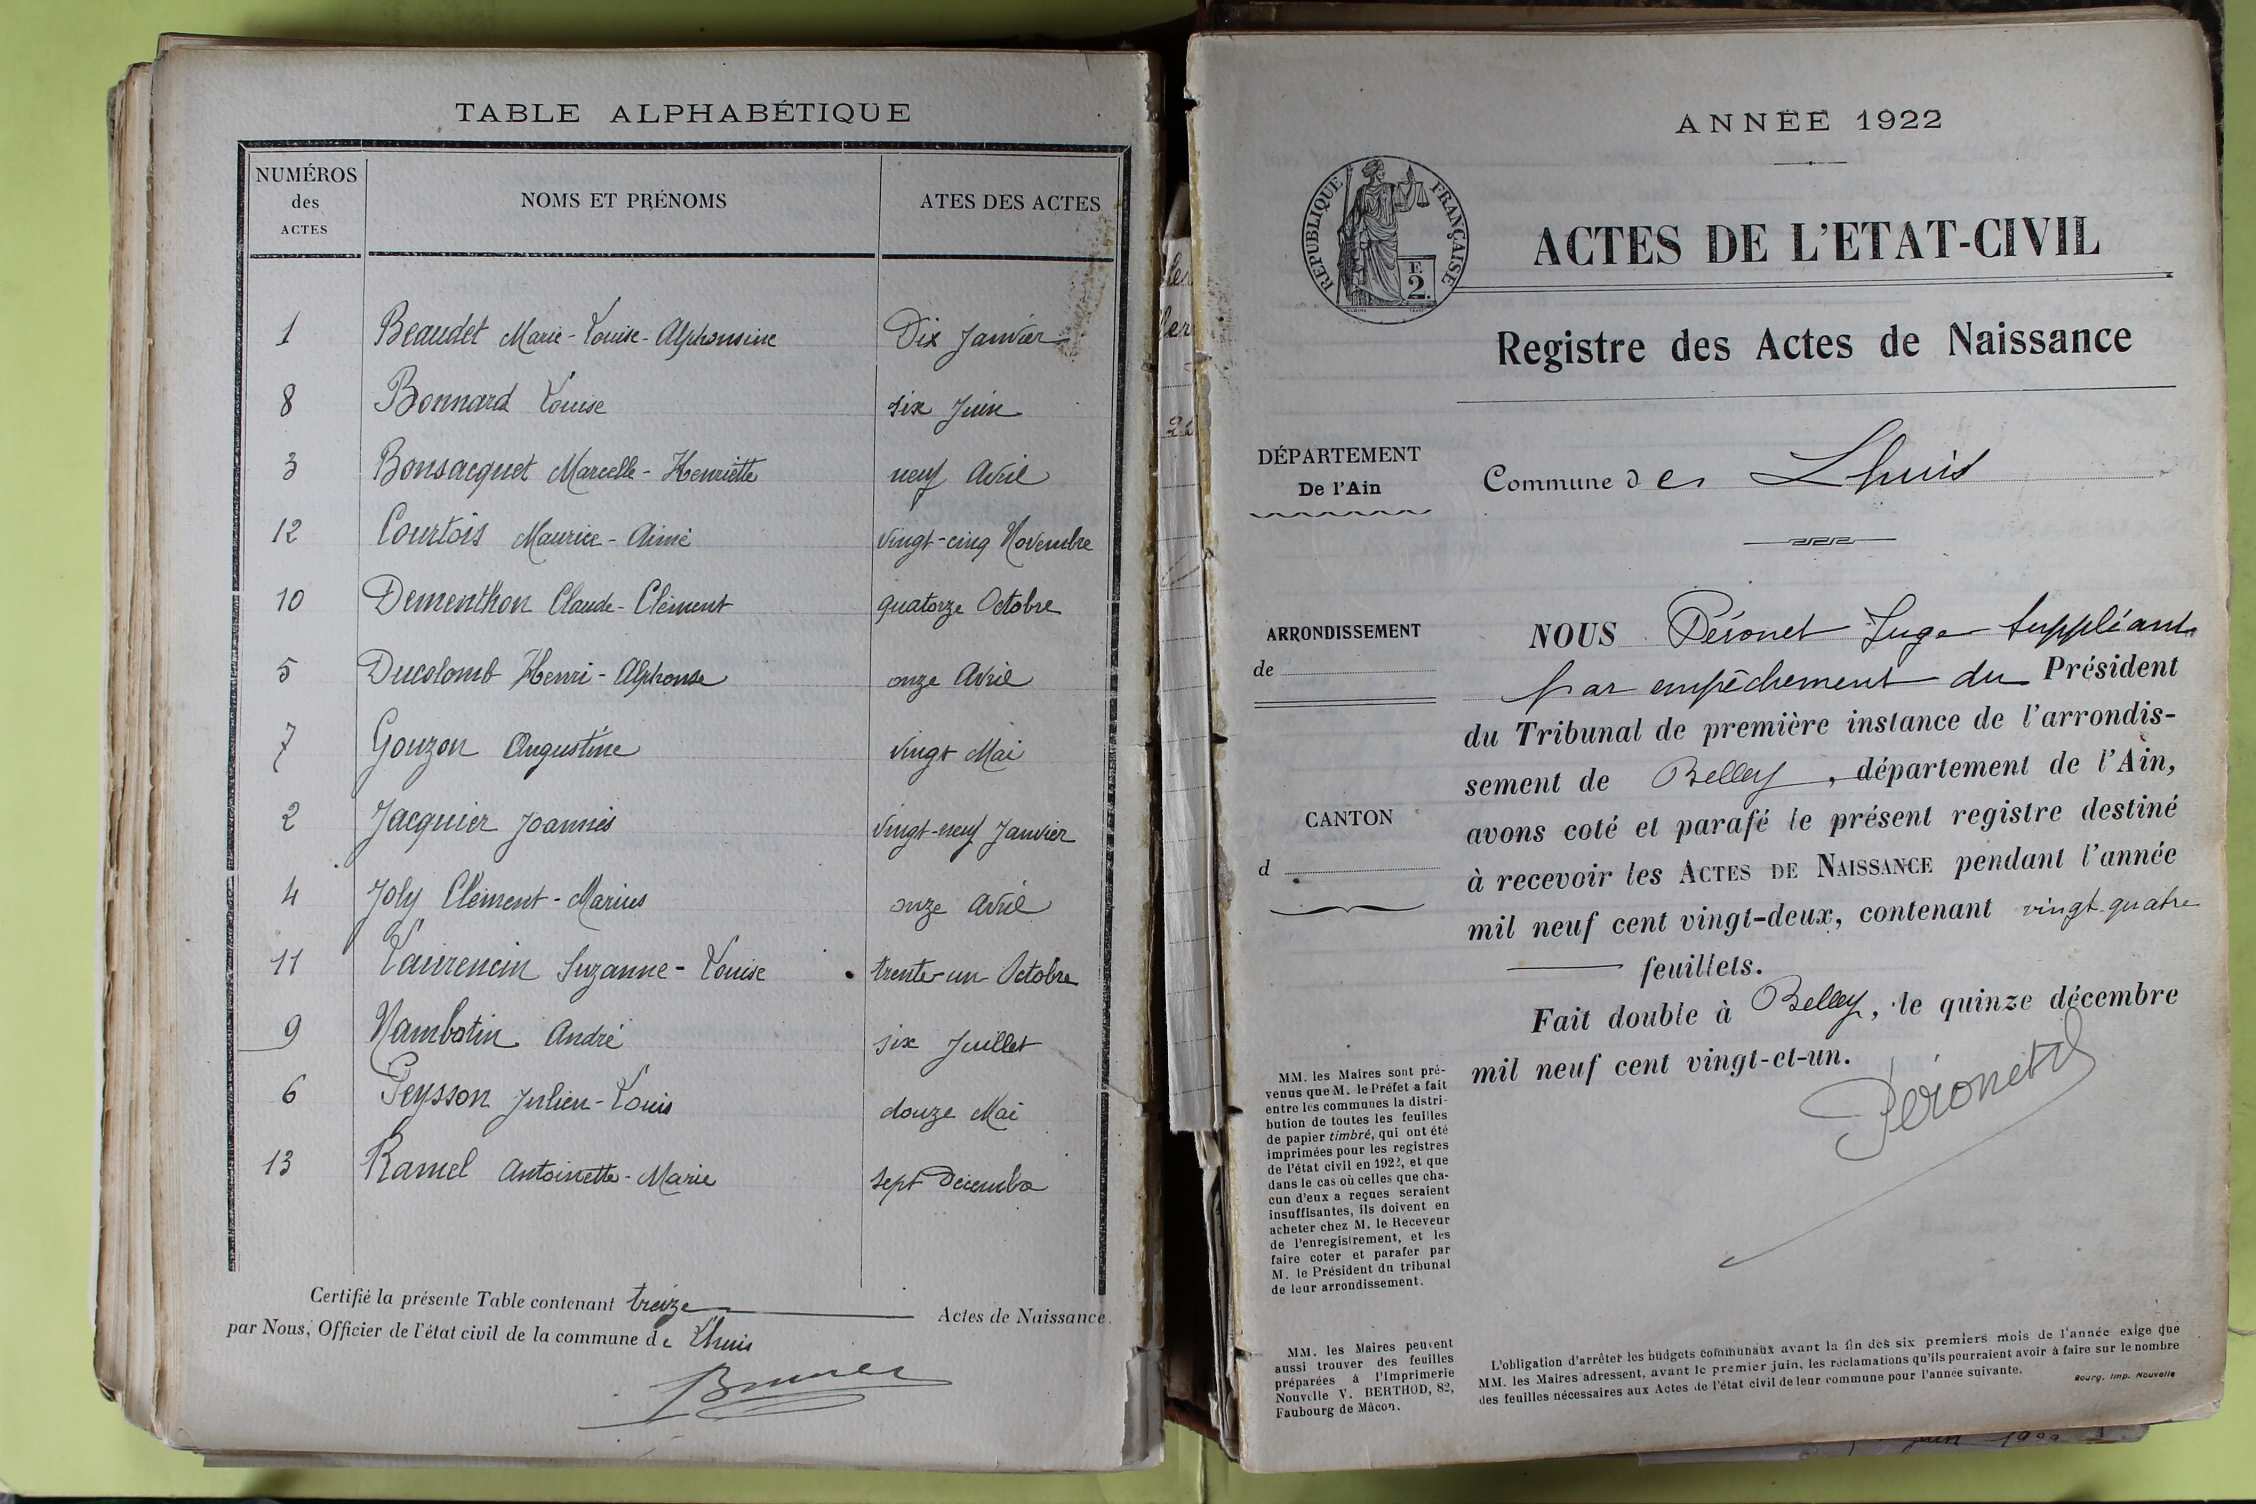 TABLE ALPHABÉTIQUE
NUMÉROS des ACTES NOMS ET PRÉNOMS ATES DES ACTES
1 Beaudet Marie-Louise-Alphonsine Dix Janvier
8 Bonnard Louise six Juin
3 Bonsacquet Marcelle-Henriette neuf Avril
12 Courtois Maurice-Aimé vingt-cinq Novembre
10 Dementhon Claude-Clément quatorze Octobre
5 Ducolomb Henri-Alphonse onze Avril
7 Gouzon Augustine vingt Mai
2 Jacquier Joannès vingt-neuf Janvier
4 Joly Clément-Marius onze Avril
11 Laurencin Suzanne-Louise trente-un Octobre
9 Nambotin André six Juillet
6 Peysson Julien-Louis douze Mai
13 Ramel Antoinette-Marie sept Décembre
Certifié la présente Table contenant treize Actes de Naissance
par Nous, Officier de l'état civil de la commune de Lhuis
ANNÉE 1922
RÉPUBLIQUE FRANÇAISE
F. 2.
ACTES DE L'ETAT-CIVIL
Registre des Actes de Naissance
DÉPARTEMENT
De l'Ain
Commune de Lhuis
ARRONDISSEMENT
de
CANTON
d
NOUS Péronet Juge Suppléant
par empêchement du Président
du Tribunal de première instance de l'arrondis-
sement de Belley, département de l'Ain,
avons coté et parafé le présent registre destiné
à recevoir les ACTES DE NAISSANCE pendant l'année
mil neuf cent vingt-deux, contenant vingt quatre
feuillets.
Fait double à Belley, le quinze décembre
mil neuf cent vingt-et-un.
Péronet
MM. les Maires sont pré-
venus que M. le Préfet a fait
entre les communes la distri-
bution de toutes les feuilles
de papier timbré, qui ont été
imprimées pour les registres
de l'état civil en 1922, et que
dans le cas où celles que cha-
cun d'eux a reçues seraient
insuffisantes, ils doivent en
acheter chez M. le Receveur
de l'enregistrement, et les
faire coter et parafer par
M. le Président du tribunal
de leur arrondissement.
MM. les Maires peuvent
aussi trouver des feuilles
préparées à l'Imprimerie
Nouvelle V. BERTHOD, 82,
Faubourg de Mâcon.
L'obligation d'arrêter les budgets communaux avant la fin des six premiers mois de l'année exige que
MM. les Maires adressent, avant le premier juin, les réclamations qu'ils pourraient avoir à faire sur le nombre
des feuilles nécessaires aux Actes de l'état civil de leur commune pour l'année suivante.
Bourg, Imp. Nouvelle